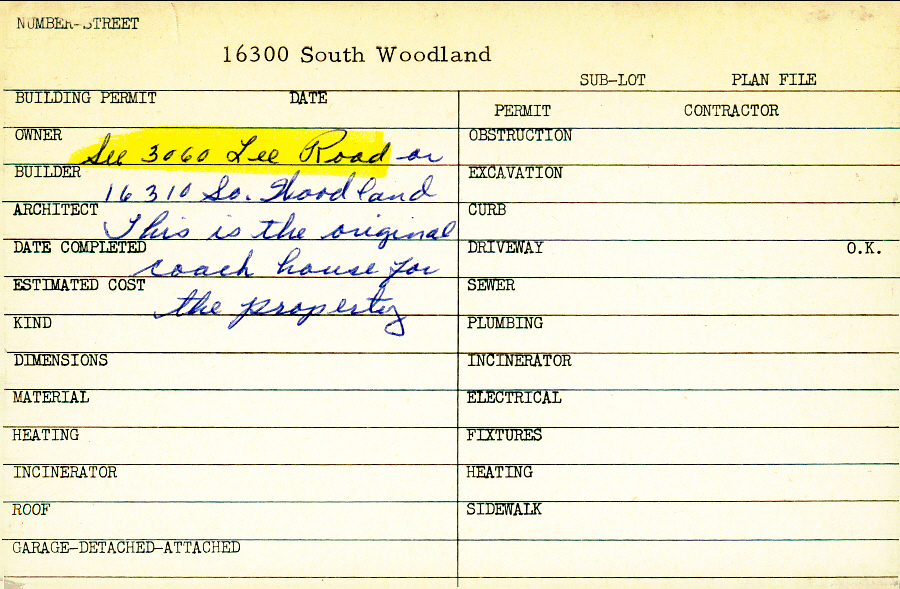 NUMBER-STREET
16300 South Woodland
SUB-LOT PLAN FILE
BUILDING PERMIT DATE
PERMIT CONTRACTOR
OWNER
See 3060 Lee Road or
BUILDER
16310 So. Woodland
ARCHITECT
This is the original
DATE COMPLETED
coach house for
ESTIMATED COST
the property
KIND
DIMENSIONS
MATERIAL
HEATING
INCINERATOR
ROOF
GARAGE-DETACHED-ATTACHED
OBSTRUCTION
EXCAVATION
CURB
DRIVEWAY O.K.
SEWER
PLUMBING
INCINERATOR
ELECTRICAL
FIXTURES
HEATING
SIDEWALK